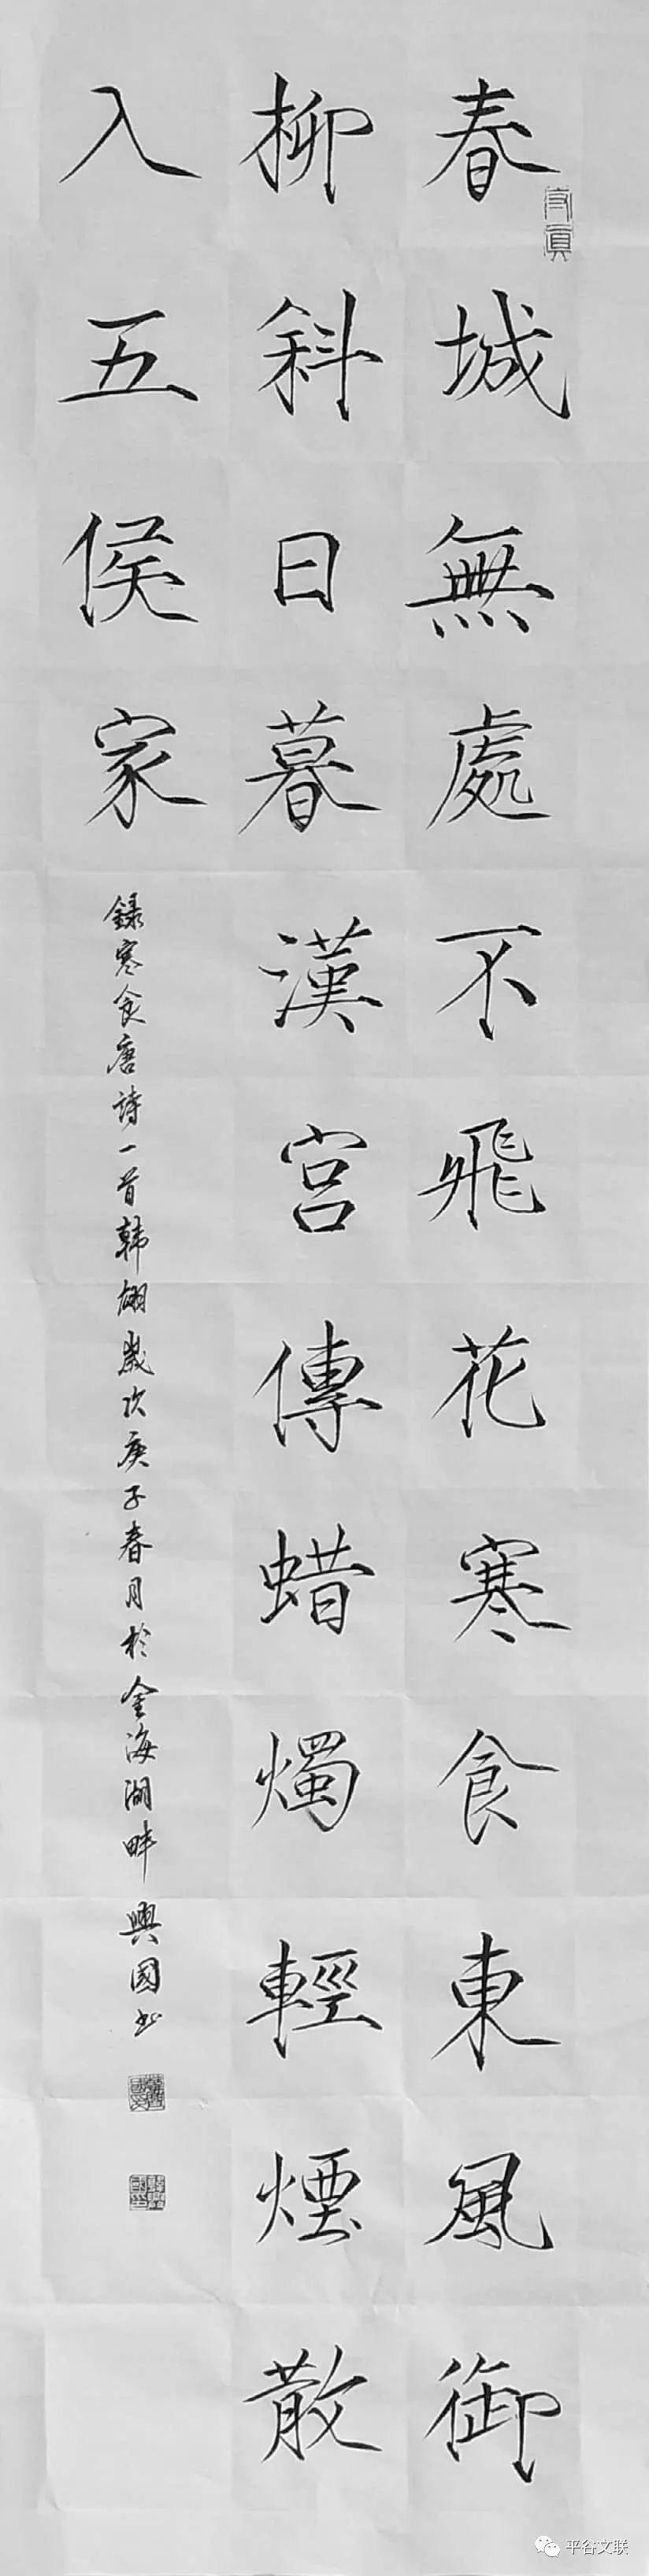 春城無處不飛花寒食東風御
柳斜日暮漢宮傳蜡燭輕煙散
入五侯家
録寒食唐詩一首韩翃歲次庚子春月於金海湖畔興國书
平谷文联